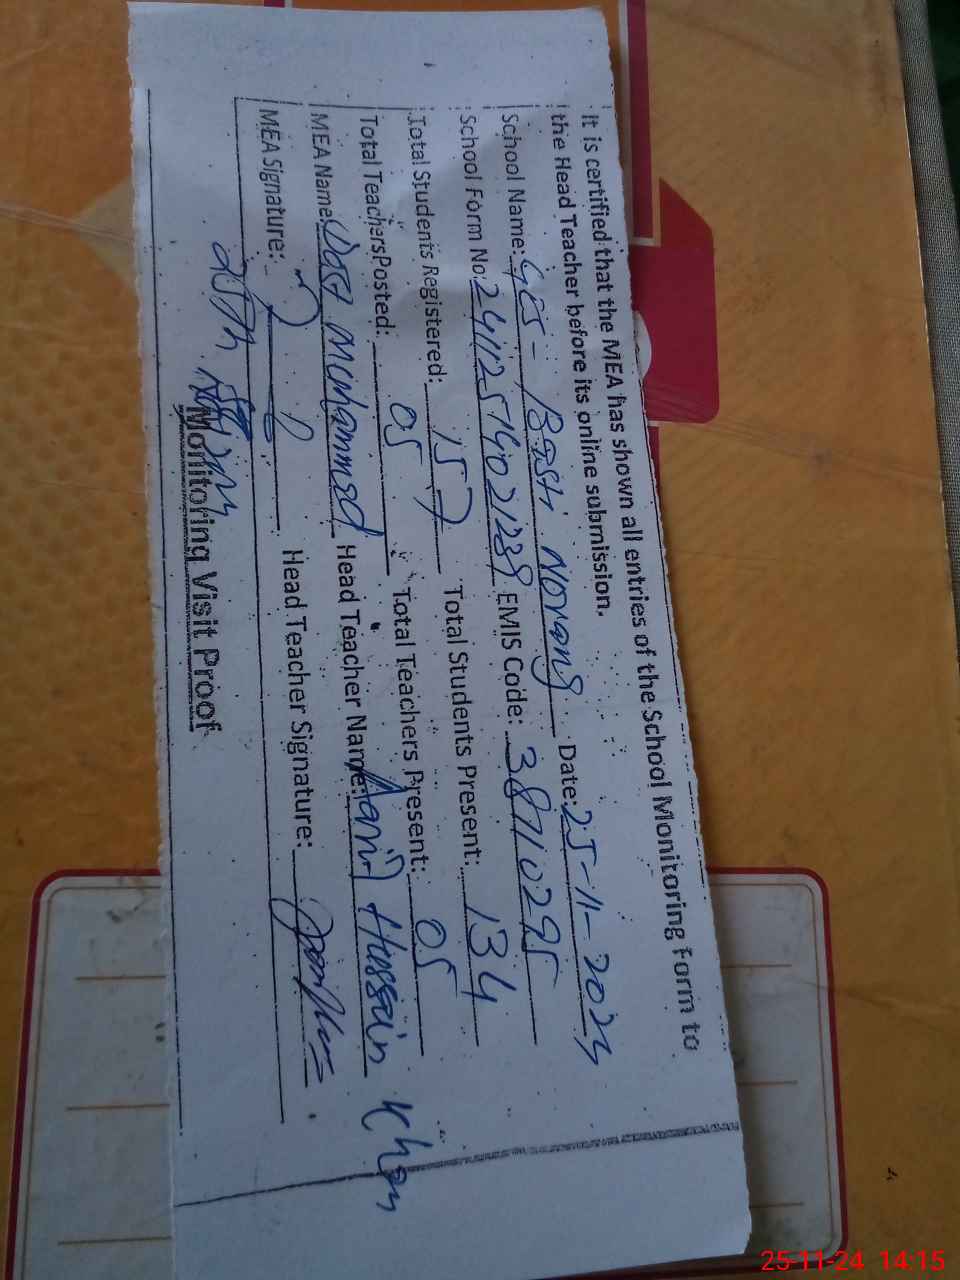 It is certified that the MEA has shown all entries of the School Monitoring Form to
the Head Teacher before its online submission.
School Name: GES- Basti Norang Date: 25-11-2024
School Form No: EMIS Code: 38710295
Total Students Registered: 157 Total Students Present: 134
Total Teachers Posted: 05 Total Teachers Present: 05
MEA Name: Dost Mohammad Head Teacher Name: Hussain Khan
MEA Signature: Head Teacher Signature:
Monitoring Visit Proof
25-11-24 14:15